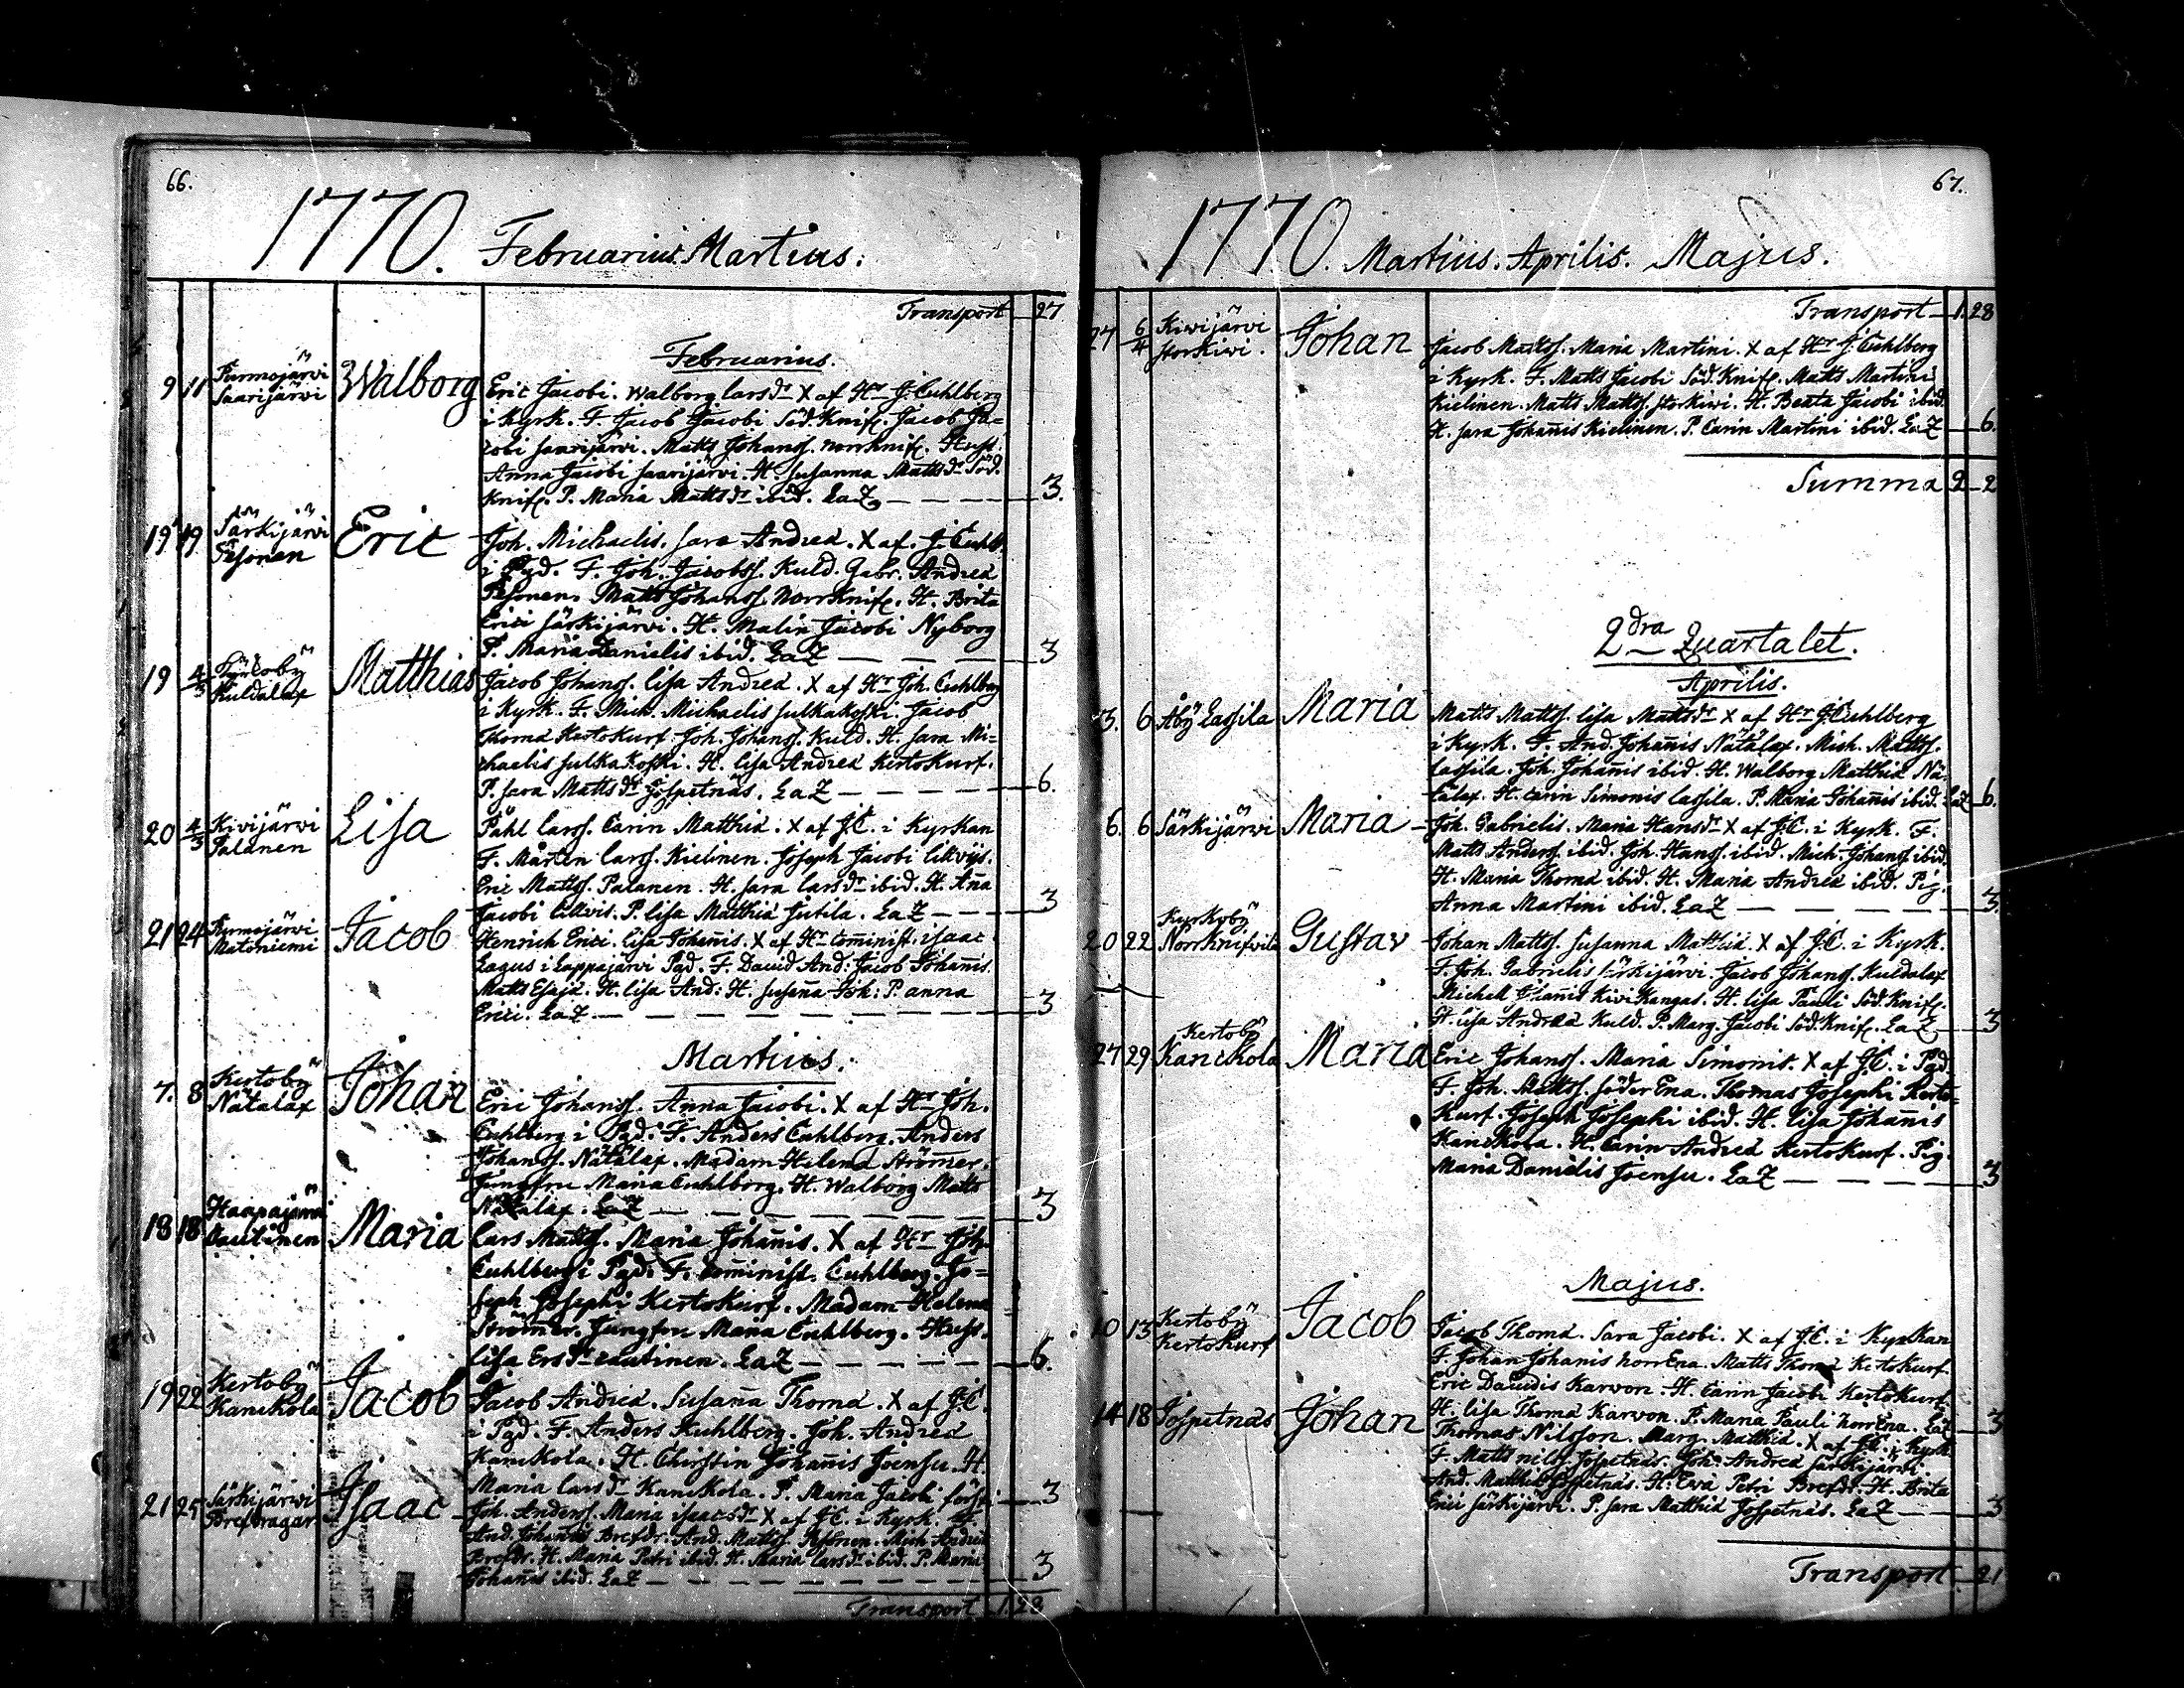 66.
1770. Februarius. Martius.
Transport 27
Februarius.
9 11 Purmojärvi Saarijärvi Walborg Eric Jacobi. Walborg larsdr X af Hr J. Cuhlberg
i Kyrk. F. Jacob Jacobi Söd. Knif. Jacob Ja=
cobi saarijärvi. Matts Johanss. norrknif. Hust.
Anna Jacobi saarijärvi. H. susanna Mattsdr Söd.
Knif. P. Maria Mattsdr ibid. LaZ 3.
19 19 Särkijärvi Pesonen Eric Joh. Michaelis. sara Andreæ. X af. J. Cuhlb.
i Pgd. F. Joh. Jacobss. Kuld. Gabr. Andreæ
Pesonen. Matts Johanss. Norrknif. H. Brita
Erici särkijärvi. H. Malin Jacobi Nyborg
P. Maria Danielis ibid. LaZ 3
19 4/3 Kuldalax Matthias Jacob Johanss. lisa Andreæ. X af Hr Joh. Cuhlberg
i Kyrk. F. Mich. Michaelis sulkakoski. Jacob
Thomæ Kertokurf. Joh. Johanss. Kuld. H. sara Mi=
chaelis sulkakoski. H. lisa Andreæ Kertokurf.
P. sara Mattsdr Jospetnäs. LaZ 6.
20 4/3 Kivijärvi Palanen Lisa Påhl larss. Carin Matthiæ. X af J.C. i Kyrkan
F. Mårten larss. Kielinen. Joseph Jacobi lillvijs.
Eric Mattss. Palanen. H. sara larsdr ibid. H. Aña
Jacobi lillvis. P. lisa Matthiæ sutila. LaZ 3
21 24 Purmojärvi Matoniemi Jacob Henrich Erici. lisa Johañis. X af Hr Com̃inist. isaac
Lagus i Lappajärvi Pgd. F. David And: Jacob Johañis.
Matts Esajæ. H. lisa And: H. susaña Joh: P. anna
Erici. LaZ 3
Martius.
7. 8 Kertoby Nätalax Johan Eric Johanss. Anna Jacobi. X af Hr Joh.
Cuhlberg i Pgd. F. Anders Cuhlberg. Anders
Johanss. Nätälax. Madam Helena Ström̃er.
Jungfru Maria Cuhlberg. H. Walborg Matts
Nätälax. LaZ 3
18 18 Haapajärvi Cautinen Maria Lars Mattss. Maria Johañis. X af Hr Joh.
Cuhlberg i Pgd. F. Com̃inist. Cuhlberg. Jo=
seph Josephi Kertokurf. Madam Helena
Ström̃er. Jungfru Maria Cuhlberg. Hust.
lisa Ersdr cautinen. LaZ 6.
19 22 Kertoby Kanckola Jacob Jacob Andreæ. Susaña Thomæ. X af J.C.
i Pgd. F. Anders Kuhlberg. Joh. Andreæ
Kanckola. H. Chirstin Johañis Joensu. H.
Maria larsdr Kanckola. P. Maria Jacobi 3
21 25 Särkijärvi Brefdragar Isaac Joh. Anderss. Maria isaacsdr X af J.C. i Kyrk. F.
And. Johañis Brefdr. And. Mattss. Pesonen. Mich. Andreæ
Brefdr. H. Maria Petri ibid. H. Maria larsdr ibid. P. Maria
Johañis ibid. LaZ 3
Transport 1. 28
67.
1770. Martius. Aprilis. Majus.
Transport 1. 28
27 6/4 Kivijärvi storkivi. Johan Jacob Mattss. Maria Martini. X af Hr J. Cuhlberg
i Kyrk. F. Matts Jacobi Söd. Knif. Matts Martini
Kielinen. Matts Mattss. storkivi. H. Beata Jacobi ibid.
H. sara Johañis Kielinen. P. Carin Martini ibid. LaZ 6.
Summa 2 2
2dra Quartalet.
Aprilis.
3. 6 Åby Lassila Maria Matts Mattss. lisa Mattsdr X af Hr J. Cuhlberg
i Kyrk. F. And. Johañis Nätälax. Mich. Mattss.
lassila. Joh. Johañis ibid. H. Walborg Matthiæ Nä-
tälax. H. carin Simonis lassila. P. Maria Johañis ibid. LaZ 6.
6. 6 Särkijärvi Maria Joh. Gabrielis. Maria Hansdr X af J.C. i Kyrk. F.
Matts Anderss. ibid. Joh. Hanss. ibid. Mich. Johanss. ibid.
H. Maria Thomæ ibid. H. Maria Andreæ ibid. Pig.
Anna Martini ibid. LaZ 3.
20 22 Kyrkoby Norrknifvila Gustav Johan Mattss. Susanna Matthiæ. X af J.C. i Kyrk.
F. Joh. Gabrielis särkijärvi. Jacob Johanss. Kuldalax
Michell Johañis Kivikangas. H. lisa Pauli Söd. Knif.
H. lisa Andreæ Kuld. P. Marg. Jacobi Söd. Knif. LaZ 3
27 29 Kertoby Kanckola Maria Eric Johanss. Maria Simonis. X af J.C. i Pgd.
F. Joh. Mattss. söder Ena. Thomas Josephi Kerto-
kurf. Joseph Josephi ibid. H. lisa Johañis
Kanckola. H. Carin Andreæ Kertokurf. Pig.
Maria Danielis Joensu. LaZ 3
Majus.
10 13 Kertoby Kertokurf Jacob Jacob Thomæ. Sara Jacobi. X af J.C. i Kyrkan
F. Johan Johanis norrEna. Matts Thomæ Kertokurf.
Eric Davidis Karvon. H. Carin Jacobi Kertokurf.
H. lisa Thomæ Karvon. P. Maria Pauli norrEna. LaZ 3
14 18 Jospetnäs Johan Thomas Nilsson. Marg. Matthiæ. X af J.C. i Kyrk.
F. Matts nilss. Jospetnäs. Joh. Andreæ särkijärvi.
And. Matthiæ Jospetnäs. H. Eva Petri Brefdr. H. Brita
Erici särkijärvi. P. sara Matthiæ Jospetnäs. LaZ 3
Transport 21